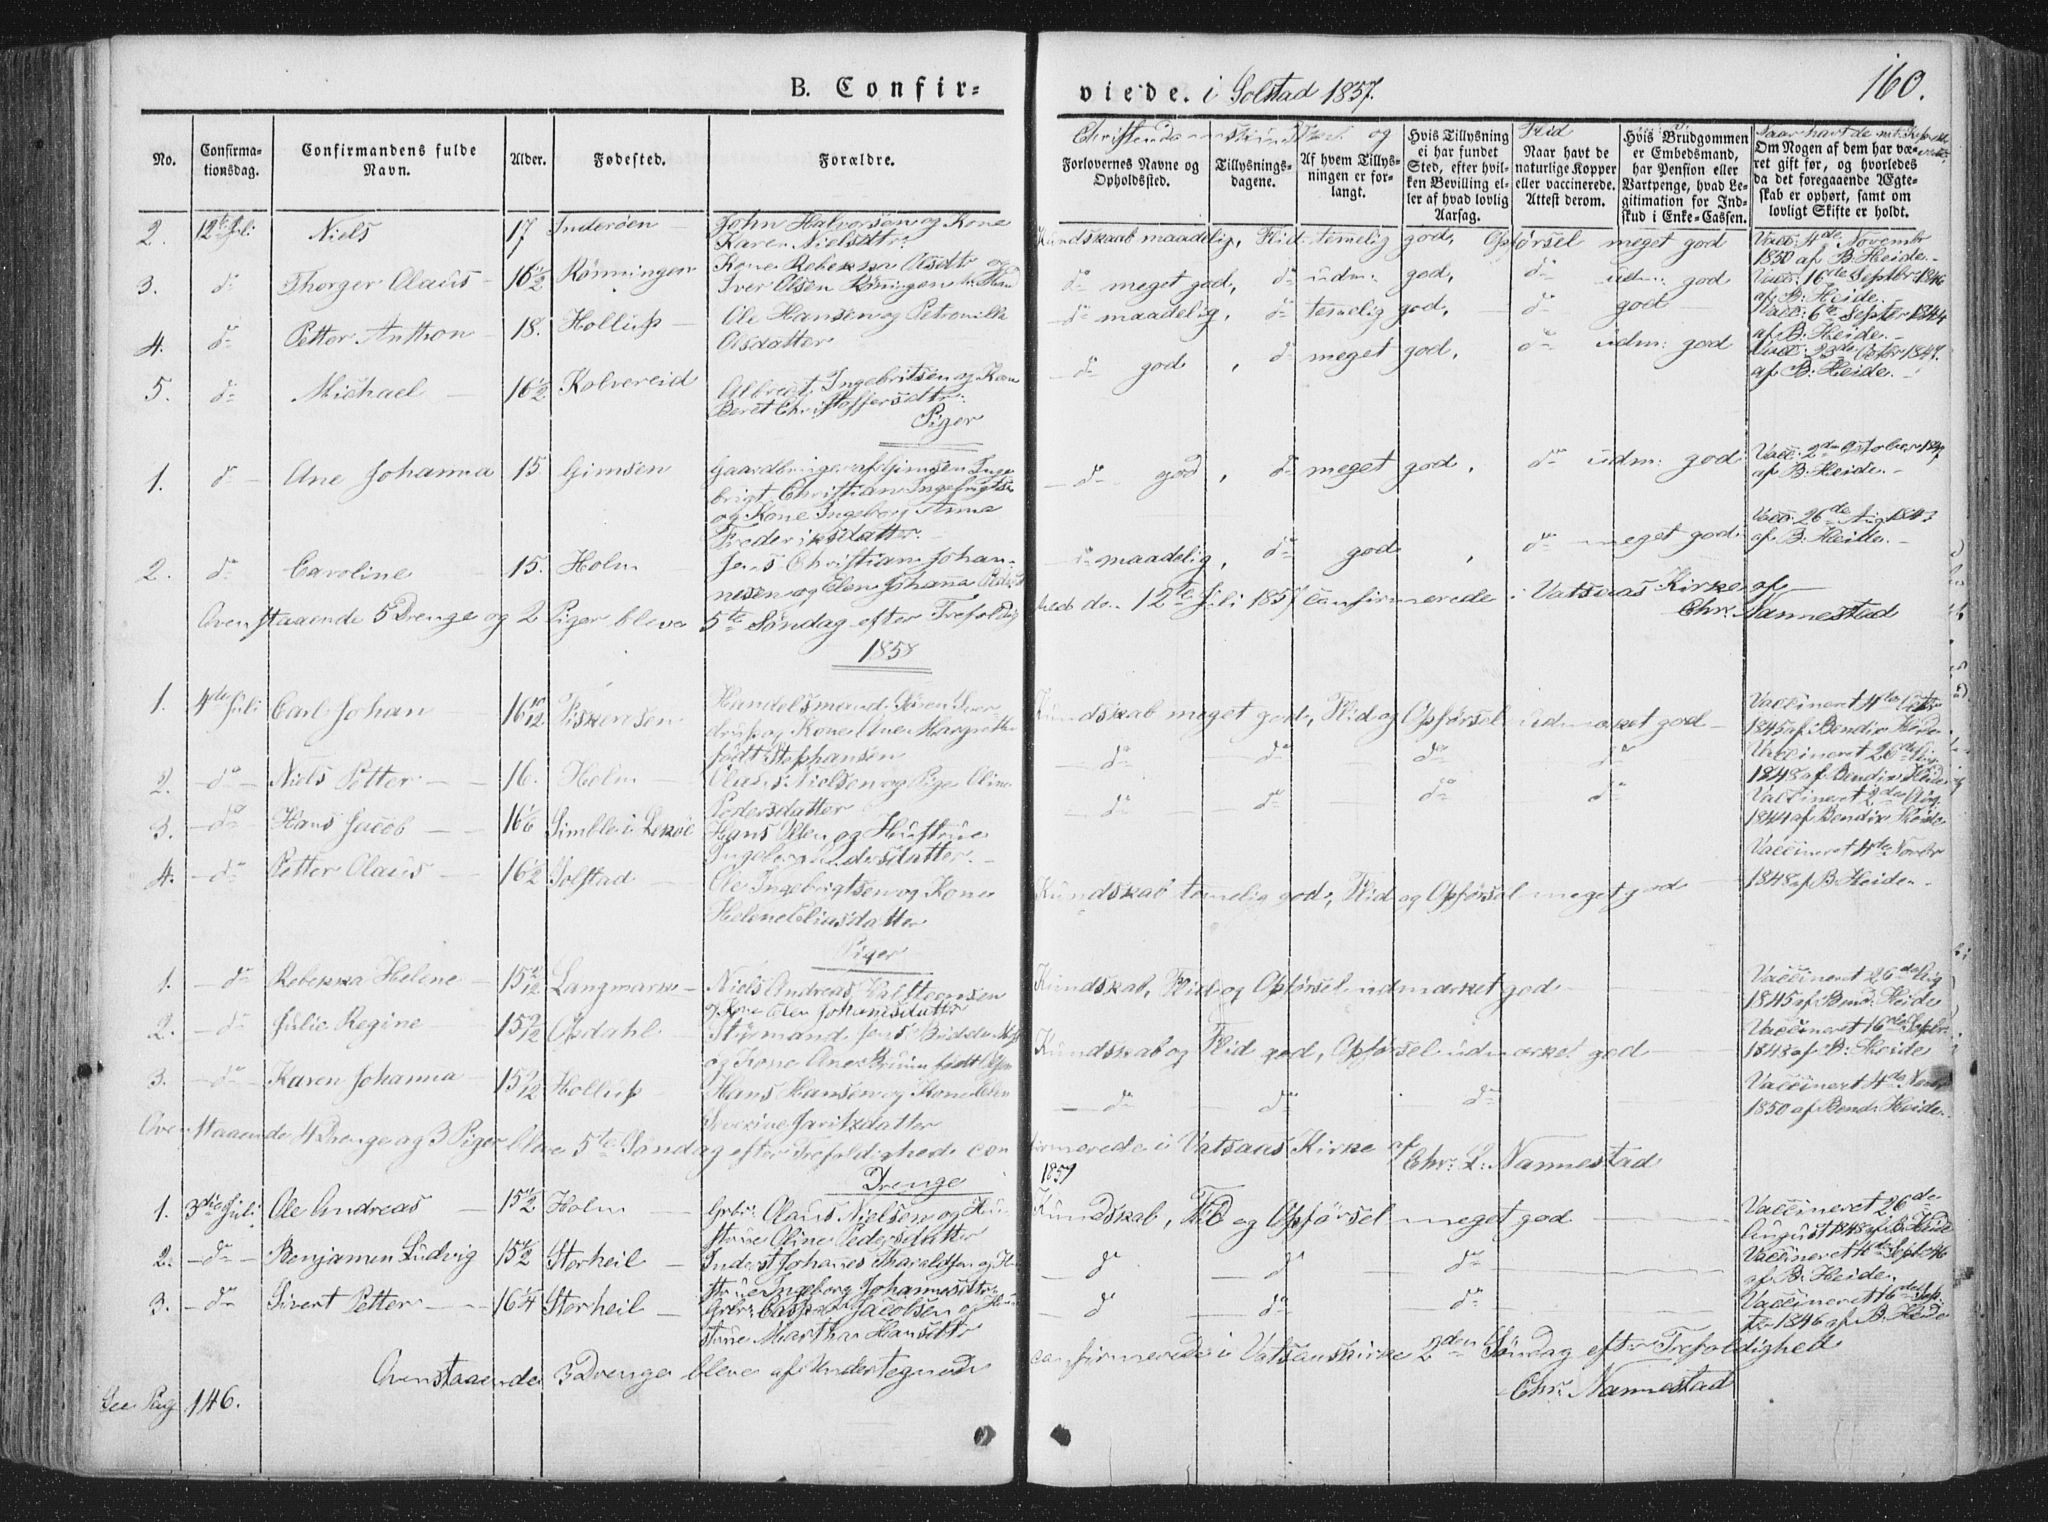 160.
B. Confir-
viede. i Solstad 1857.
No.
Confirma-
tionsdag.
Confirmandens fulde
Navn.
Alder.
Fødested.
Forældre.
og
Flid
Forlovernes Navne og
Opholdssted.
Tillysnings-
dagene.
Af hvem Tillys-
ningen er for-
langt.
Hvis Tillysning
ei har fundet
Sted, efter hvil-
ken Bevilling el-
ler af hvad lovlig
Aarsag.
Naar havt de
naturlige Kopper
eller vaccinerede.
Attest derom.
Hvis Brudgommen
er Embedsmand,
har Pension eller
Vartpenge, hvad Le-
gitimation for Ind-
skud i Enke-Cassen.
Om Nogen af dem har væ-
ret gift før, og hvorledes
da det foregaaende Ægte-
skab er ophørt, samt om
lovligt Skifte er holdt.
2. 12te Juli Niels 17 Inderøen John Halvorsen og Kone
Karen Nielsdtr.
Kundskaab maadelig, Flid temelig god, Opførsel meget god
Vacc. 4de Novembr
1850 af B. Heide.
3. do Thorger Olaus 16 1/2 Rönningen Kone Rebekka Olsdtr og
Iver Olsen Röningen
do meget god, do udm: god, do udm: god
Vacc. 16de Septbr 1846
af B. Heide.
4. do Petter Anthon 18. Hollup Ole Hansen og Petronille
Olsdatter
do maadelig, do temelig god, do god
Vacc. 6te Septbr 1844
af B. Heide.
5. do Michael 16 1/2 Kolvereid Albregt Ingebritsen og Kone
Beret Christoffersdtr:
do god, do meget god, do udm: god
Vacc. 23de Octbr 1847.
af B. Heide.
Piger
1. do Ane Johanna 15 Gimsen Gaardbruger af Gimsen Inge
brigt Christian Ingebrigtsen
og Kone Ingeborg Anna
Frederiksdatter
do god, do meget god, do udm: god
Vacc. 2de October 1847
af B. Heide.
2. do Caroline 15. Holm Jens Christian Johan-
nesen og Elen Johana
do maadelig, do god, do meget god
Vacc. 26de Aug 1843
af B. Heide.
Ovenstaaende 5 Drenge og 2 Piger bleve 5te Søndag efter Trefoldig
hed den 12te Juli 1857 confirmerede i Vatsaas Kirke af
Chr. Nannestad
1858
1. 4de Juli Carl Johan 16 10/12 Fiskeosen Handelsmand Sören
og Kone Ane Margrethe
født Stephansen
Kundskab meget god, Flid og Opførsel udmærket god
Vaccineret 4de Octbr
1845 af Bendix Heide
2. do Niels Petter 16. Holm Olaus Nielsen og Pige Oline
Pedersdatter
do do do do
Vaccineret 26de Aug
1848 af Bendix Heide
3. do Hans Jacob 16 1/6 Simble i Lekøe Hans Olsen og Hustrue
Ingeborg Andersdatter
do do do do
Vaccineret 2den Aug.
1844 af Bendix Heide
4. do Petter Olaus 16 1/2 Solstad Ole Ingebrigtsen og Kone
Helene Eliasdatter
Kundskab temelig god, Flid og Opførsel meget god
Vaccineret 4de Novbr
1848 af B. Heide.
Piger
1. do Rebekka Helene 15 Langmark Niels Andreas
og Kone Elen Johanisdatter
Kundskab, Flid og Opførsel udmærket god
Vaccineret 26de Aug
1845 af Bend. Heide
2. do Julie Regine 15 Opdahl Styrmand Jens
og Kone Ane Bruun født Olsen
Kundskab og Flid god, Opførsel udmærket god
Vaccineret 16de Septbr.
1848 af B. Heide
3. do Karen Johanna 15 Hollup Hans Hansen og Kone Elen
Severine Jaritzdatter
do do do
Vaccineret 4de Novbr
1850 af Bend. Heide.
Ovenstaaende 4 Drenge og 3 Piger bleve 5te Søndag efter Trefoldighed con
firmerede i Vatsaas Kirke af Chr. L. Nannestad
Drenge 1859
1. 3die Juli Ole Andreas 15 1/2 Holm Grbr: Olaus Nielsen og Hu-
strue Oline Pedersdatter
Kundskab, Flid og Opførsel meget god
Vaccineret 26de
August 1848 af B. Heide
2. do Benjamen Ludvig 15 1/2 Storheil Inderst Johanes Tharaldsen og Hu
strue Ingeborg Johannesdtr.
do do do
Vaccineret 4de Sept. 46
af B. Heide.
3. do Sivert Petter 16 1/4 Storheil Grbr: Casper Jacobsen og Hu
strue Martha Hansdtr
do do do
Vaccineret 16de Sep.
tbr 1846 af B. Heide
Ovenstaaende 3 Drenge bleve af Undertegnede
confirmerede i Vatsaas kirke 2den Søndag efter Trefoldighed
Chr. Nannestad
See Pag 146.